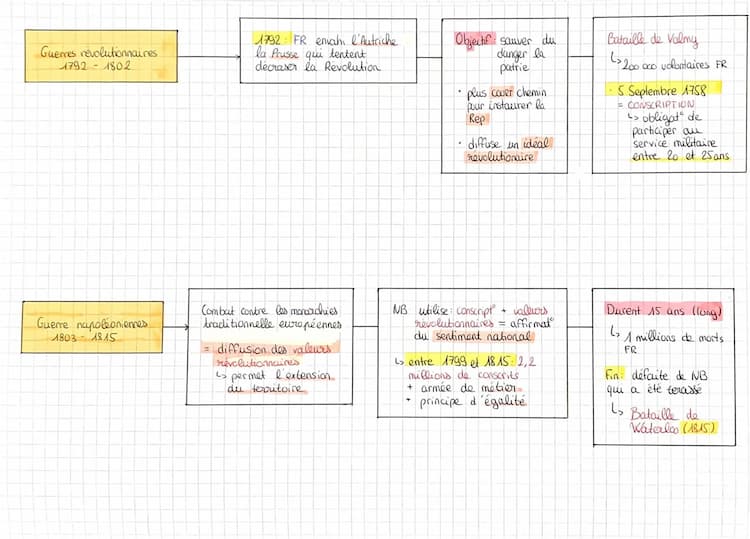 Guerres révolutionnaires
1792 - 1802
1792 : FR envahi l'Autriche
la Prusse qui tentent
décraser la Révolution
Objectif : sauver du
danger la
patrie
• plus court chemin
pour instaurer la
Rep
• diffuse un idéal
révolutionaire
Bataille de Valmy
↳ 200 000 volontaires FR
• 5 Septembre 1758
= CONSCRIPTION
↳ obligat° de
participer au
service militaire
entre 20 et 25 ans
Guerre napoléoniennes
1803 - 1815
Combat contre les monarchies
traditionnelle européennes
= diffusion des valeurs
révolutionnaires
↳ permet l'extension
du territoire
NB utilise : conscript° + valeurs
révolutionnaires = affirmat°
du sentiment national
↳ entre 1799 et 1815 : 2,2
millions de conscrits
+ armée de métier
+ principe d'égalité
Durent 15 ans (long)
↳ 1 millions de morts
FR
Fin : défaite de NB
qui a été terassé
↳ Bataille de
Waterloo (1815)